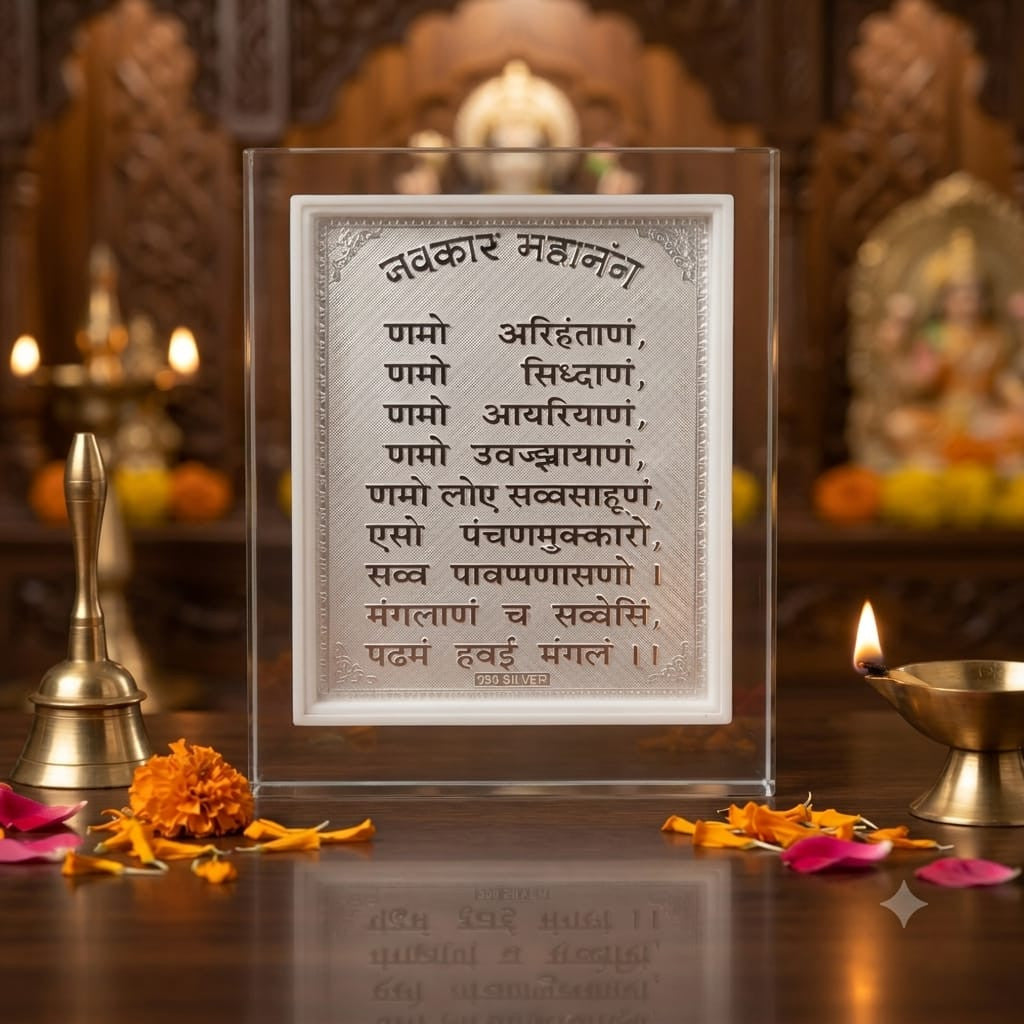 नवकार महानंन
णमो अरिहंताणं,
णमो सिध्दाणं,
णमो आयरियाणं,
णमो उवज्झायाणं,
णमो लोए सव्वसाहूणं,
एसो पंचणमुक्कारो,
सव्व पावप्पणासणो ।
मंगलाणं च सव्वेसिं,
पढमं हवई मंगलं ।।
990 SILVER